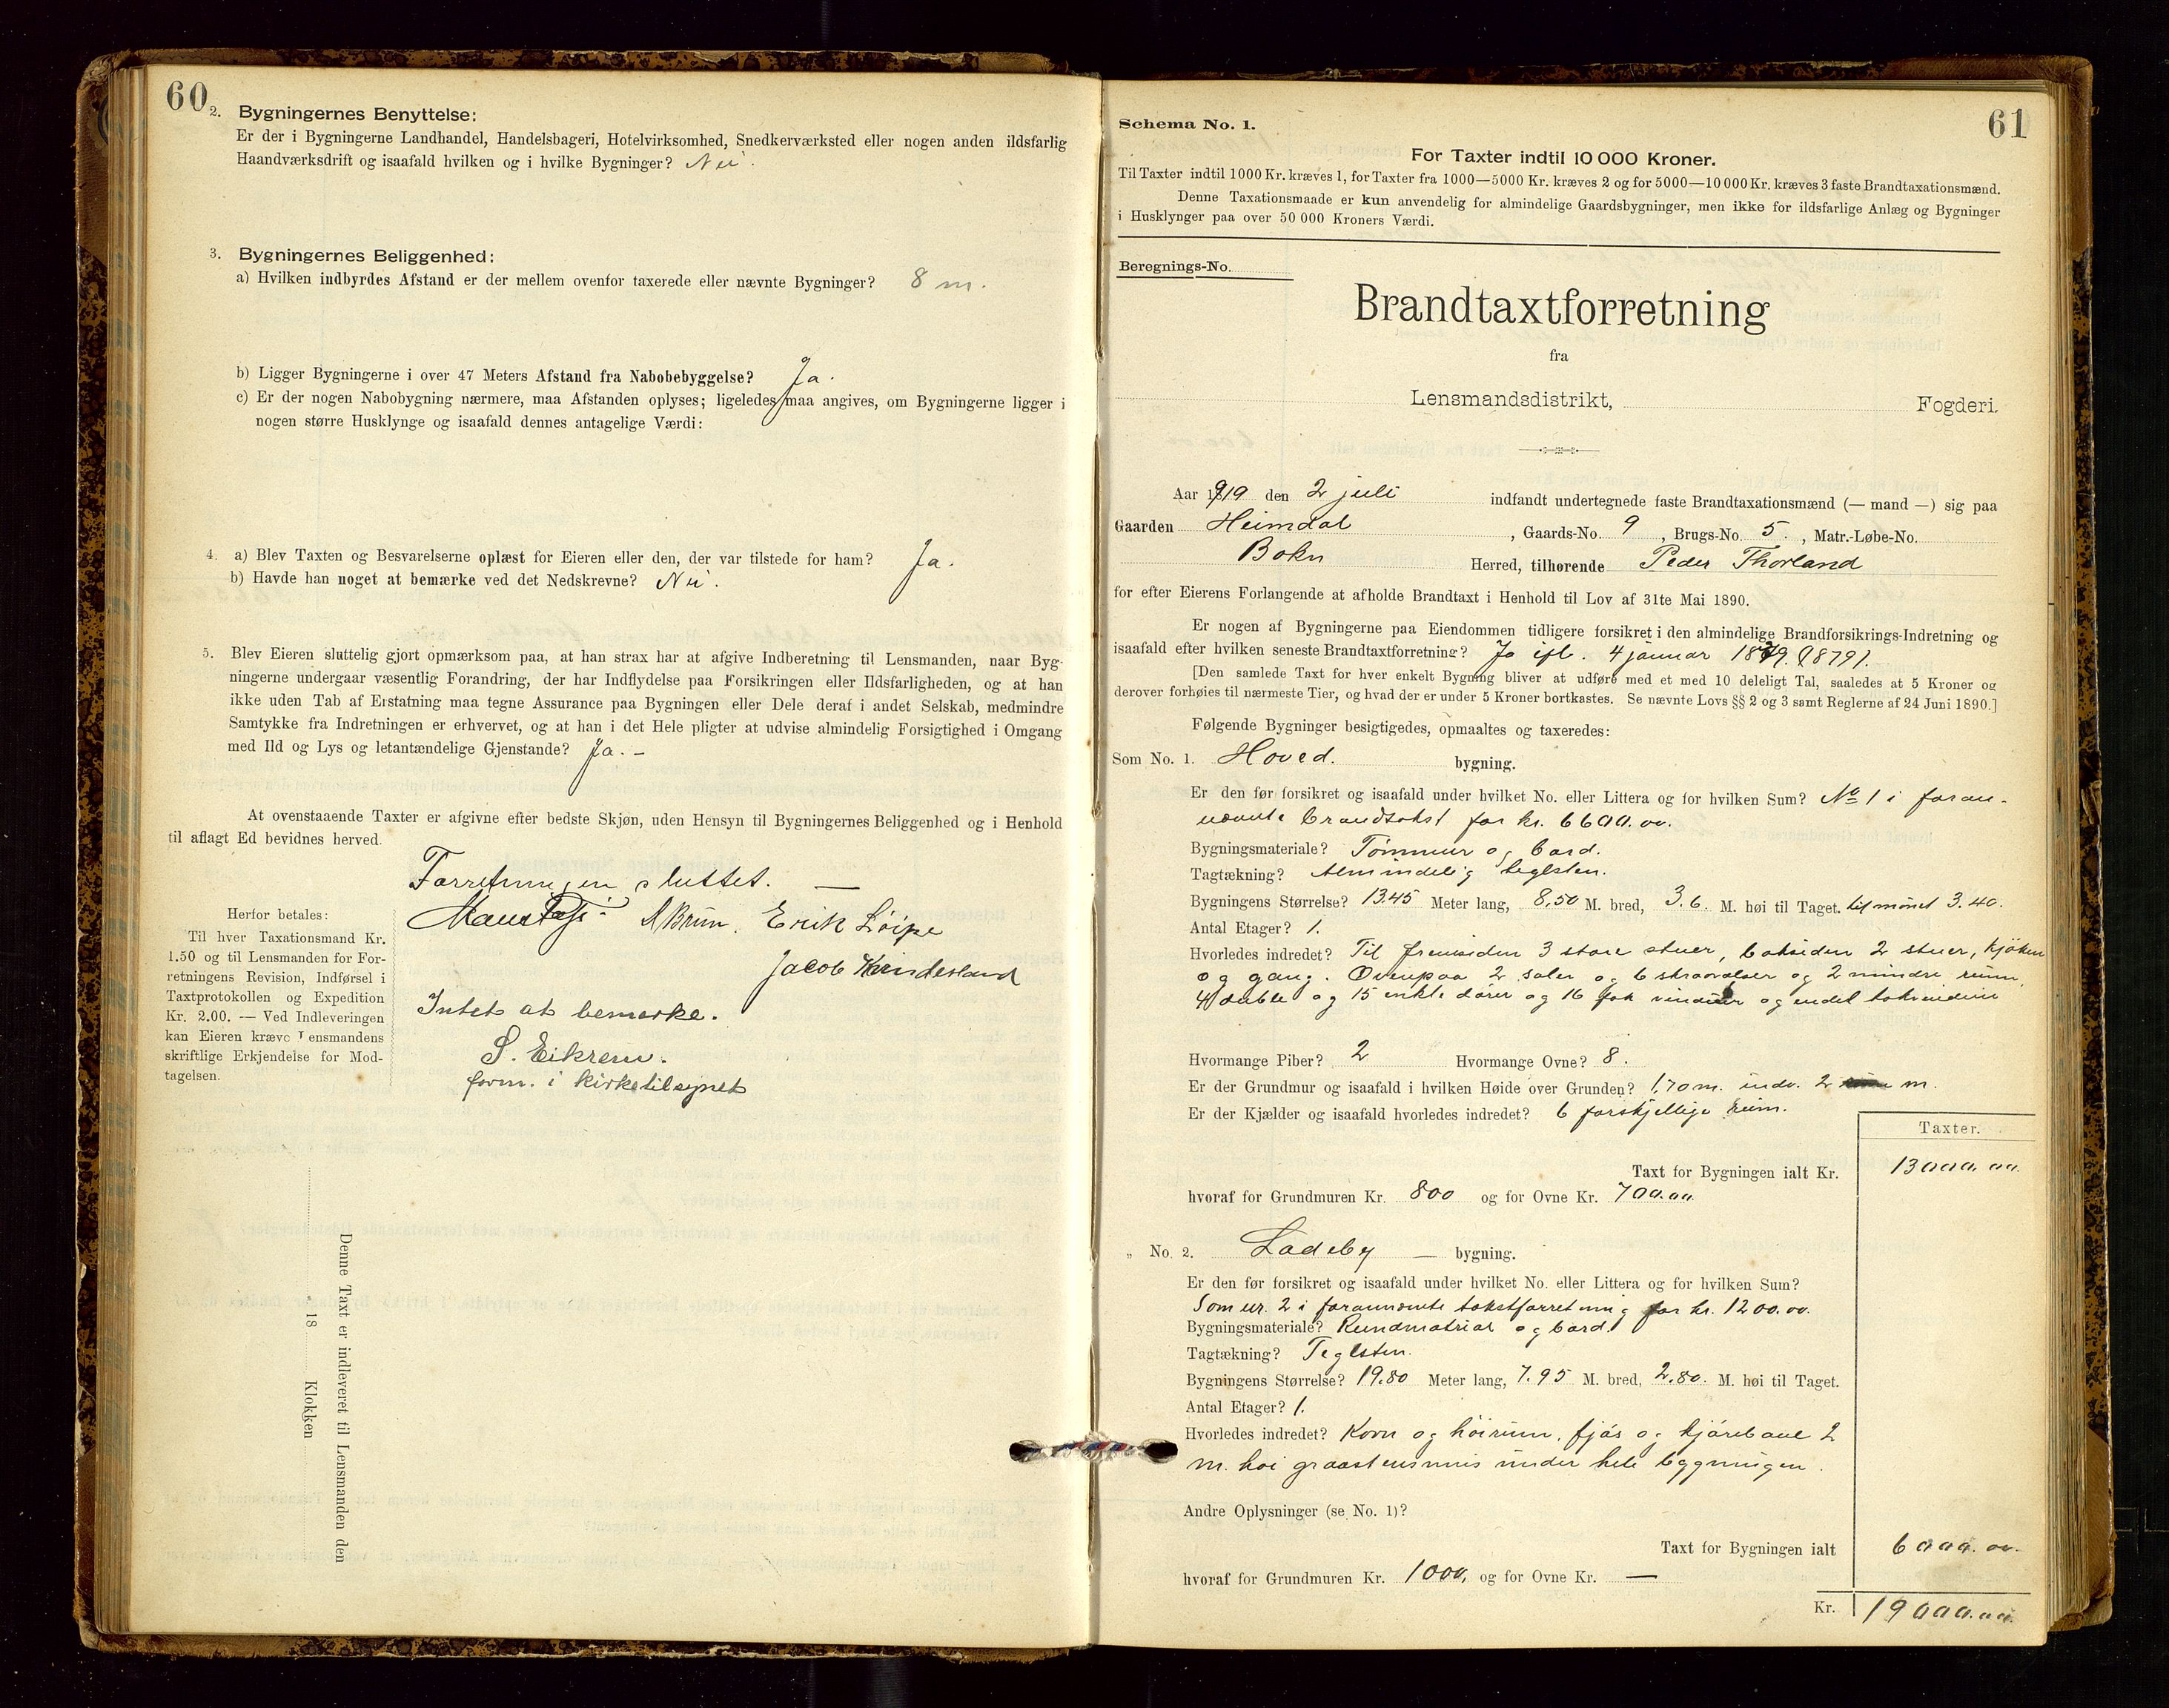 60
2. Bygningernes Benyttelse:
Er der i Bygningerne Landhandel, Handelsbageri, Hotelvirksomhed, Snedkerværksted eller nogen anden ildsfarlig
Haandværksdrift og isaafald hvilken og i hvilke Bygninger? Nei.
3. Bygningernes Beliggenhed:
a) Hvilken indbyrdes Afstand er der mellem ovenfor taxerede eller nævnte Bygninger? 8 m.
b) Ligger Bygningerne i over 47 Meters Afstand fra Nabobebyggelse? Ja.
c) Er der nogen Nabobygning nærmere, maa Afstanden oplyses; ligeledes maa angives, om Bygningerne ligger i
nogen større Husklynge og isaafald dennes antagelige Værdi:
4. a) Blev Taxten og Besvarelserne oplæst for Eieren eller den, der var tilstede for ham? Ja.
b) Havde han noget at bemærke ved det Nedskrevne? Nei.
5. Blev Eieren sluttelig gjort opmærksom paa, at han strax har at afgive Indberetning til Lensmanden, naar Byg-
ningerne undergaar væsentlig Forandring, der har Indflydelse paa Forsikringen eller Ildsfarligheden, og at han
ikke uden Tab af Erstatning maa tegne Assurance paa Bygningen eller Dele deraf i andet Selskab, medmindre
Samtykke fra Indretningen er erhvervet, og at han i det Hele pligter at udvise almindelig Forsigtighed i Omgang
med Ild og Lys og letantændelige Gjenstande? Ja. –
At ovenstaaende Taxter er afgivne efter bedste Skjøn, uden Hensyn til Bygningernes Beliggenhed og i Henhold
til aflagt Ed bevidnes herved.
Forretningen sluttet. —
A Brun. Erik Loipe
Jacob
Intet at bemerke.
S. Eikrem.
form. i kirketilsynet
Herfor betales:
Til hver Taxationsmand Kr.
1.50 og til Lensmanden for For-
retningens Revision, Indførsel i
Taxtprotokollen og Expedition
Kr. 2.00. — Ved Indleveringen
kan Eieren kræve Lensmandens
skriftlige Erkjendelse for Mod-
tagelsen.
Denne Taxt er indleveret til Lensmanden den
18 Klokken
61
Schema No. 1.
For Taxter indtil 10 000 Kroner.
Til Taxter indtil 1000 Kr. kræves 1, for Taxter fra 1000—5000 Kr. kræves 2 og for 5000—10 000 Kr. kræves 3 faste Brandtaxationsmænd.
Denne Taxationsmaade er kun anvendelig for almindelige Gaardsbygninger, men ikke for ildsfarlige Anlæg og Bygninger
i Husklynger paa over 50 000 Kroners Værdi.
Beregnings-No.
Brandtaxtforretning
fra
Lensmandsdistrikt, Fogderi.
Aar 1919 den 2 juli indfandt undertegnede faste Brandtaxationsmænd (— mand —) sig paa
Gaarden Heimdal, Gaards-No. 9, Brugs-No. 5., Matr.-Løbe-No.
Bokn Herred, tilhørende Peder Thorland
for efter Eierens Forlangende at afholde Brandtaxt i Henhold til Lov af 31te Mai 1890.
Er nogen af Bygningerne paa Eiendommen tidligere forsikret i den almindelige Brandforsikrings-Indretning og
isaafald efter hvilken seneste Brandtaxtforretning? Ja ifl. 4 januar 1879. (1879).
[Den samlede Taxt for hver enkelt Bygning bliver at udføre med et med 10 deleligt Tal, saaledes at 5 Kroner og
derover forhøies til nærmeste Tier, og hvad der er under 5 Kroner bortkastes. Se nævnte Lovs §§ 2 og 3 samt Reglerne af 24 Juni 1890.]
Følgende Bygninger besigtigedes, opmaaltes og taxeredes:
Som No. 1. Hoved. bygning.
Er den før forsikret og isaafald under hvilket No. eller Littera og for hvilken Sum? No 1 i foran-
nevnte brandtakst for kr. 6600.00.
Bygningsmateriale? Tømmer og bord.
Tagtækning? Almindelig teglsten.
Bygningens Størrelse? 13.45 Meter lang, 8,50 M. bred, 3.6. M. høi til Taget. til mønet 3.40.
Antal Etager? 1.
Hvorledes indredet? Til fremsiden 3 store stuer, baksiden 2 stuer, kjøken
og gang. Ovenpaa 2 saler og 6 og 2 mindre rum.
4 duble og 15 enkle dører og 16 fok vinduer og endel takvinduer
Hvormange Piber? 2 Hvormange Ovne? 8.
Er der Grundmur og isaafald i hvilken Høide over Grunden? 1,70 m. indv. 2 m.
Er der Kjælder og isaafald hvorledes indredet? 6 forskjellige rum.
Taxter.
Taxt for Bygningen ialt Kr. 13000.00.
hvoraf for Grundmuren Kr. 800 og for Ovne Kr. 700.00.
„ No. 2. Ladeby — bygning.
Er den før forsikret og isaafald under hvilket No. eller Littera og for hvilken Sum?
Som nr. 2 i forannevnte takstforretning for kr. 1200.00.
Bygningsmateriale? Rundmatrial og bord.
Tagtækning? Teglsten.
Bygningens Størrelse? 19.80 Meter lang, 7.95 M. bred, 2.80. M. høi til Taget.
Antal Etager? 1.
Hvorledes indredet? Korn og høirum, fjøs og kjørebane 2
m. høi graastensmur under hele bygningen.
Andre Oplysninger (se No. 1)?
Taxt for Bygningen ialt 6000.00.
hvoraf for Grundmuren Kr. 1000, og for Ovne Kr. —
Kr. 19000.00.